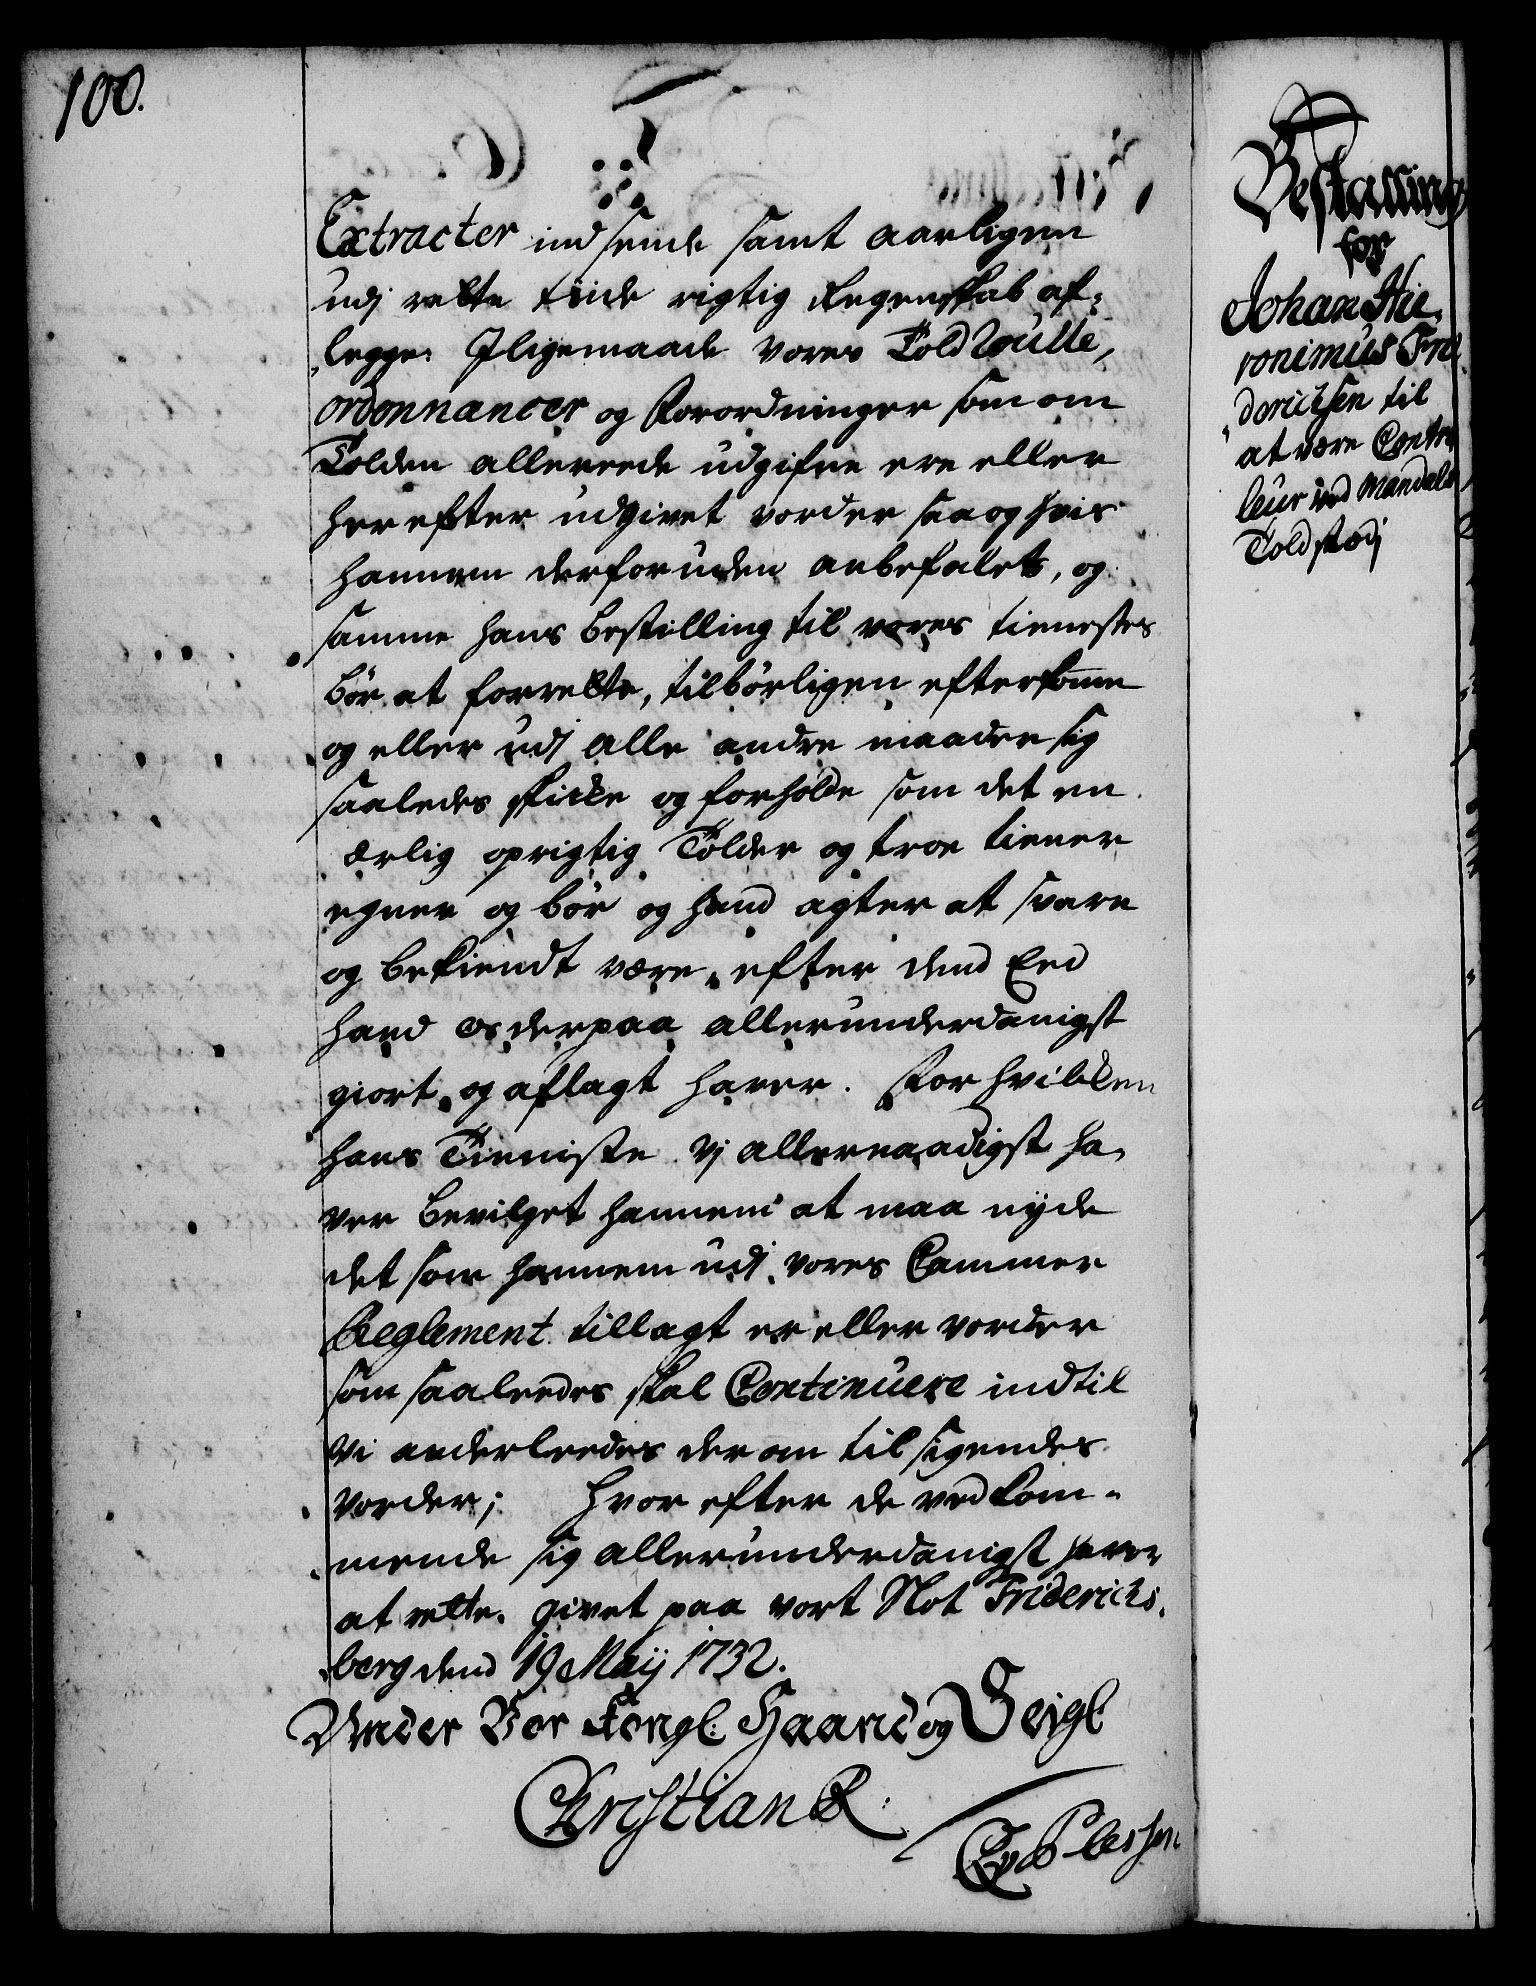 100.
Extracter indsende samt aarligen
udj rette tiide rigtig Regenskab af-
legge. Iligemaade vores Told Roulle,
ordonnancer og Forordninger som om
Tolden allereede udgifne ere eller
her efter udgivet vorder saa og hvis
hannem derforuden anbefalet, og
samme hans bestilling til vores tienestes
bør at forrette, tilbørligen efterkomme
og eller udj alle andre maader sig
saaledes skicke og forholde som det en
ærlig oprigtig Tolder og troe tiener
egner og bør og hand agter at svare
og bekiendt være, efter dend Eed
hand os derpaa allerunderdanigst
giort og aflagt haver. For hvilcken
hans Tieniste Vj allernaadigst ha-
ver bevilget hannem at maa nyde
det som hannem udj vores Cammer
Reglement tillagt er eller vorder
som saaleedes skal Continuere indtil
Vi anderleedes derom til sigendes
vorder; Hvor efter de vedkom-
mende sig allerunderdanigst haver
at rette. Givet paa vort Slot Friderichs-
berg dend 19 Maij 1732.
Under Vor Kongl: Haand og Seigl
Christian R.
CAvPlessen
Bestalling
for
Johan Hie-
ronimus Fri-
derichsen til
at være Contro
leur ved Mandals
Toldstedj